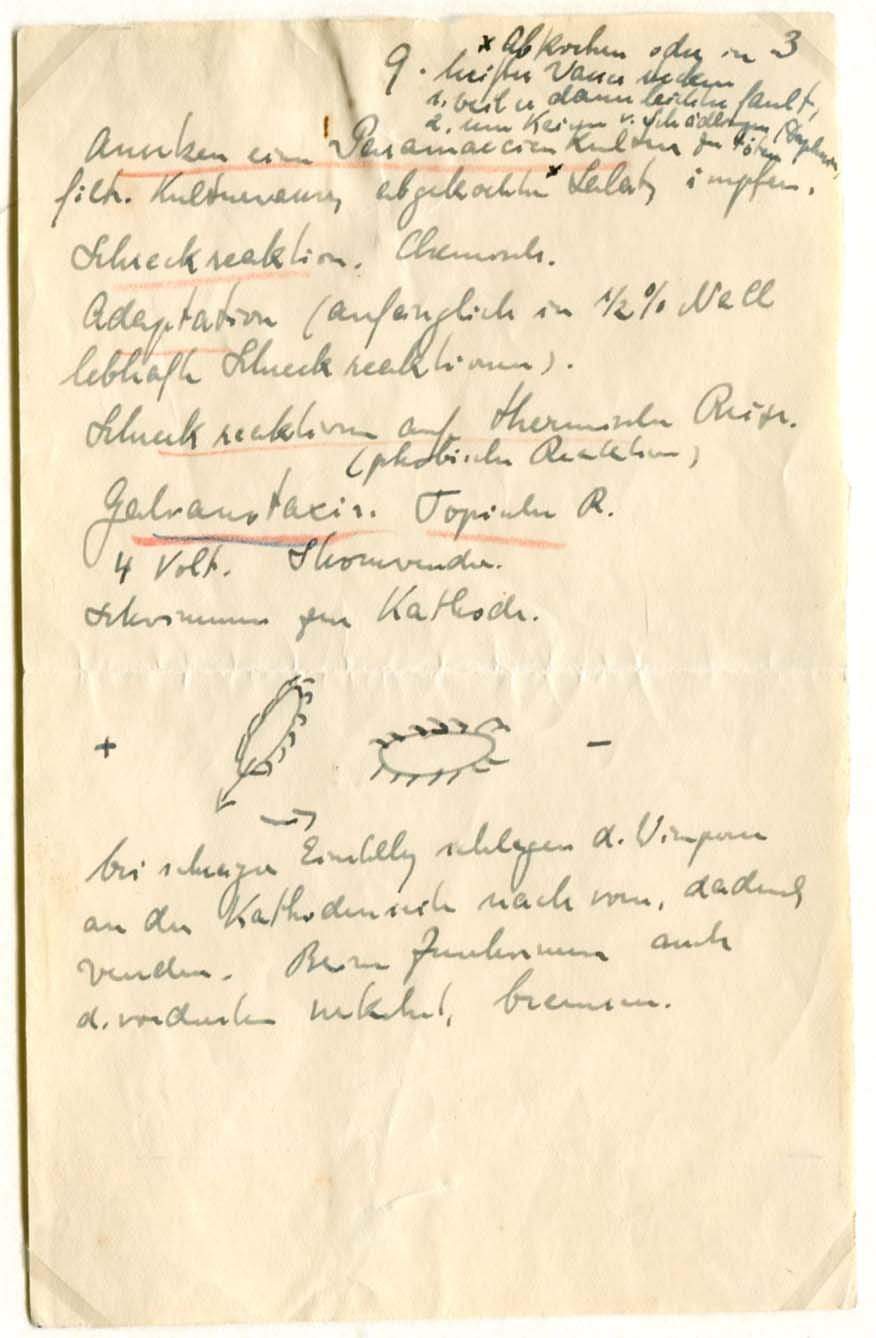 3
9.
x Abkochen oder in
heißes Wasser
1. weil er dann leichter fault,
2. um Keime v. Schädlingen zu töten
Ansetzen einer Paramaecien Kultur
filtr. Kulturwasser, abgekochten x Salat, impfen.
Schreckreaktion. Chemisch.
Adaptation (anfänglich in 1/2 % NaCl
lebhafte Schreckreaktionen).
Schreckreaktionen auf thermische Reize.
(phobische Reaktion)
Galvanotaxis. Topische R.
4 Volt. Stromwender.
Schwimmen zur Kathode.
+ -
→
bei schräger Einstellg schlagen d. Wimpern
an der Kathodenseite nach vorn, dadurch
wenden. Beim auch
d. vordersten verkehrt, bremsen.